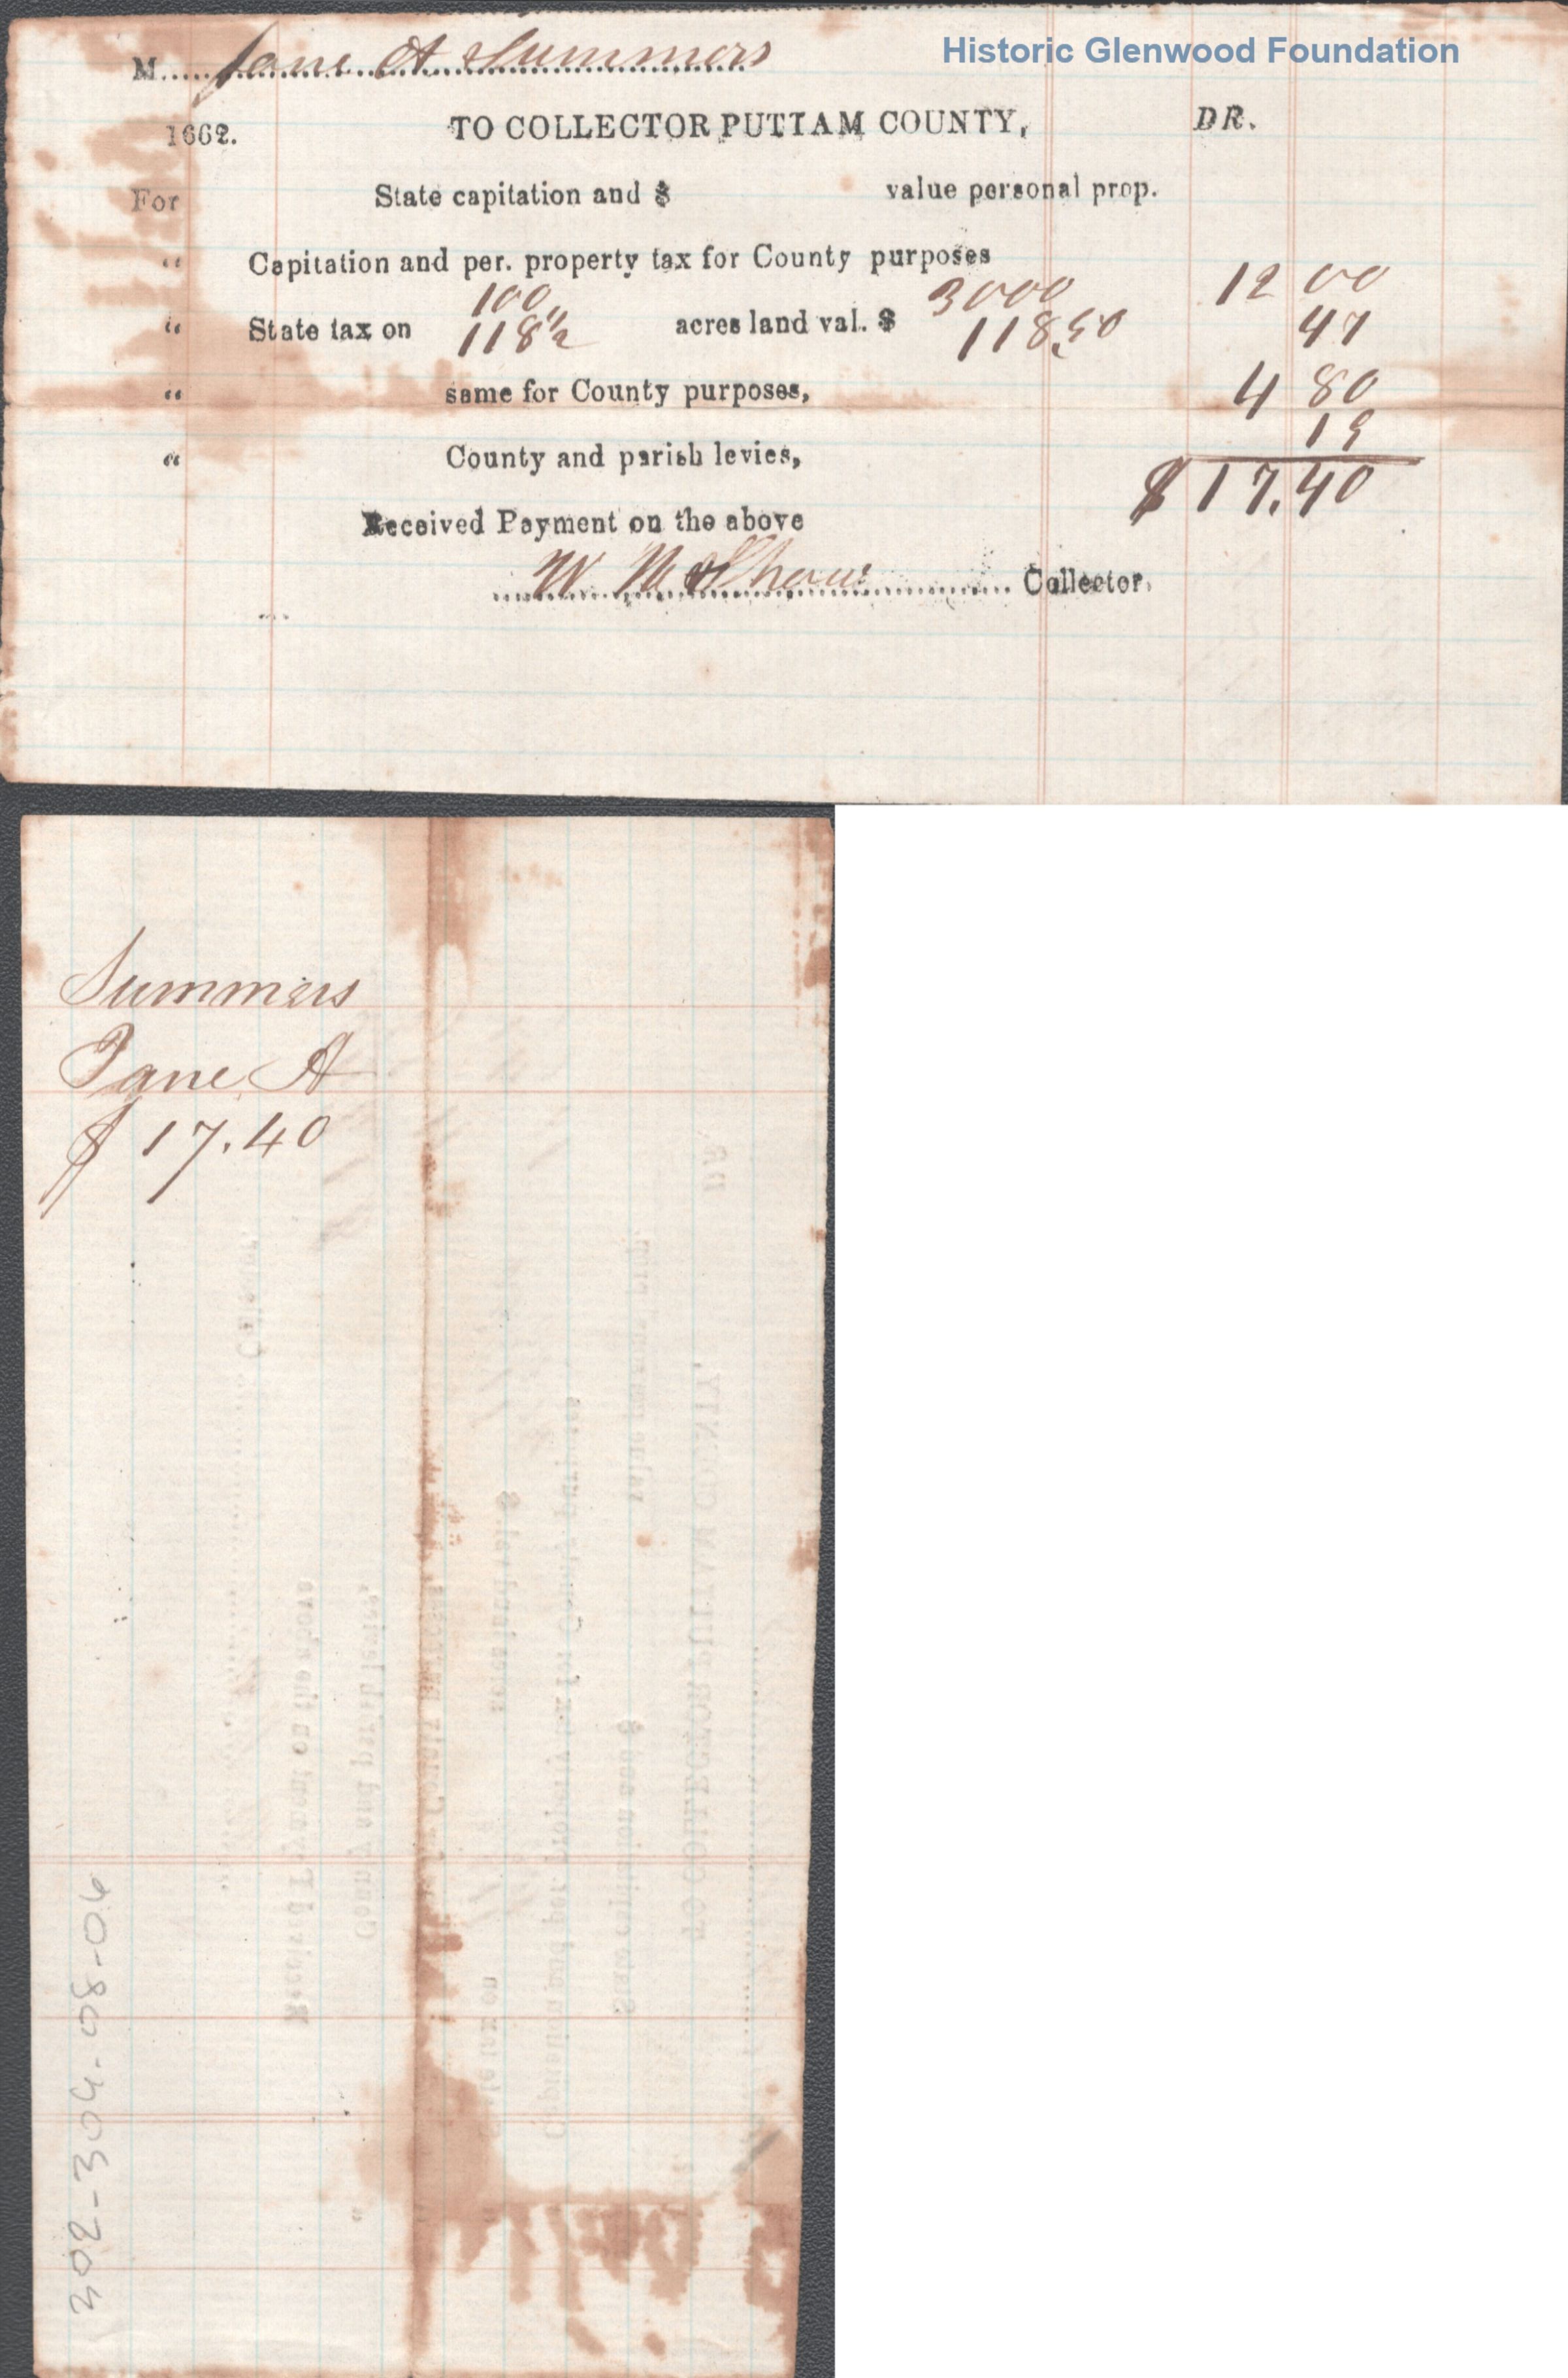 Historic Glenwood Foundation
M......Jane A Summers
1662. TO COLLECTOR PUTTAM COUNTY, DR.
For State capitation and $ value personal prop.
" Capitation and per. property tax for County purposes
100 3000 12 00
" State tax on 118 1/2 acres land val. $ 118.50 47
" same for County purposes, 4 80
19
" County and parish levies,
$17.40
Received Payment on the above
W. M. Shaw Collector.
Summers
Jane A
$17.40
302-304-08-06